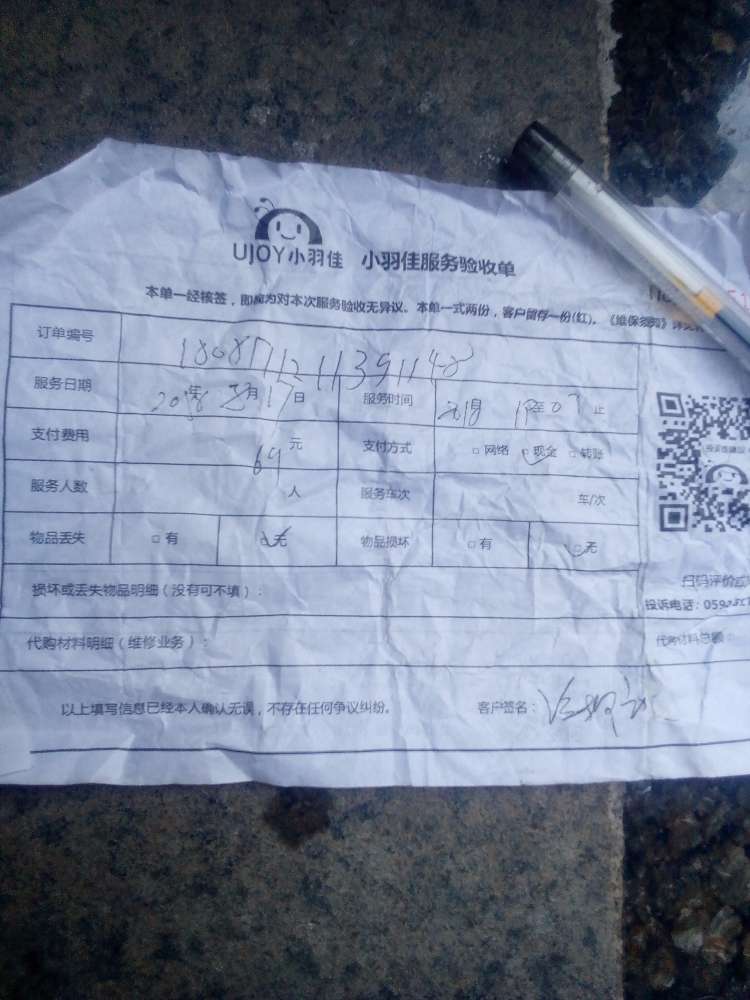 UJOY小羽佳 小羽佳服务验收单
本单一经核签，即视为对本次服务验收无异议。本单一式两份，客户留存一份(红)。《维保须知》详见
订单编号
服务日期 2018年 月17日 服务时间 至 止
支付费用 69元 支付方式 □网络 □现金 □转账
服务人数 人 服务车次 车/次
物品丢失 □有 □无 物品损坏 □有 □无
损坏或丢失物品明细（没有可不填）：
扫码评价或
投诉电话：059
代购材料明细（维修业务）： 代购材料总额：
以上填写信息已经本人确认无误，不存在任何争议纠纷。 客户签名：